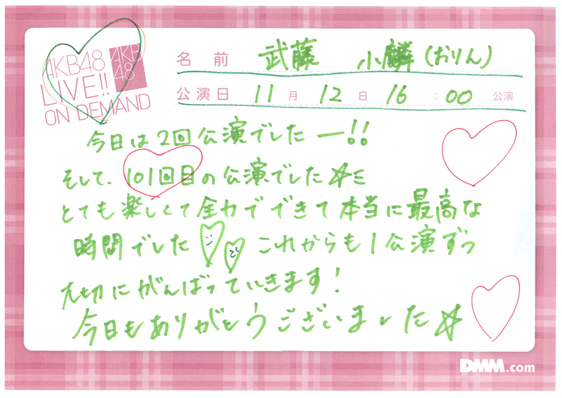 AKB48
LIVE!!
ON DEMAND
AKB
48
名前 武藤 小麟(おりん)
公演日 11月 12日 16:00 公演
今日は2回公演でしたー!!
そして、101回目の公演でした☆ミ
とても楽しくて全力でできて本当に最高な
時間でした これからも1公演ずつ
大切にがんばっていきます!
今日もありがとうございました☆
DMM.com